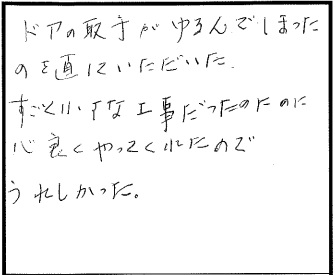 ドアの取手がゆるんでしまった
のを直していただいた。
すごく小さな工事だったのに
心良くやってくれたので
うれしかった。